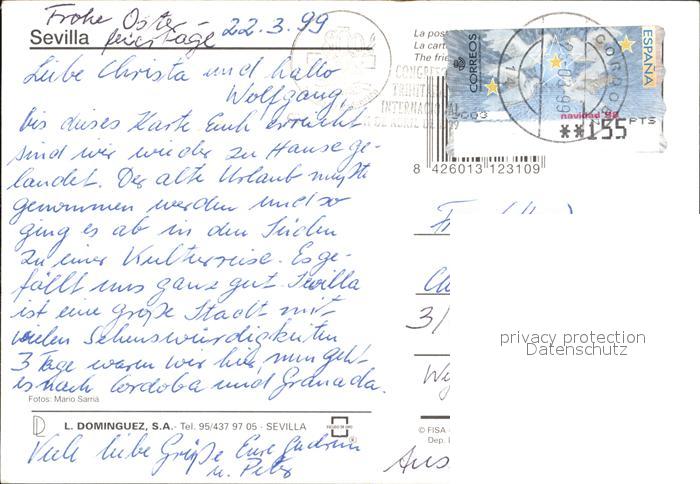 Frohe Oster-
feiertage
22.3.99
Sevilla
Liebe Christa und hallo
Wolfgang,
bis dieses Karte Euch erreicht
sind wir wieder zu Hause ge-
landet. Der alte Urlaub mußte
genommen werden und so
ging es ab in den Süden
zu einer Kulturreise. Es ge-
fällt uns ganz gut. Sevilla
ist eine große Stadt mit
vielen Sehenswürdigkeiten
3 Tage waren wir hier, nun geht
es nach Cordoba und Granada.
Fotos: Mario Sarria
L. DOMINGUEZ, S.A.- Tel. 95/437 97 05 - SEVILLA
Viele liebe Grüße Eure Gudrun
u. Peter
La
La cart
The frie
CONGRES
INTERNACIONAL
CORREOS
ESPAÑA
CORREOS
navidad 98
**155 PTS
8 426013 123109
3/
privacy protection
Datenschutz
© FISA
Dep.
Aus